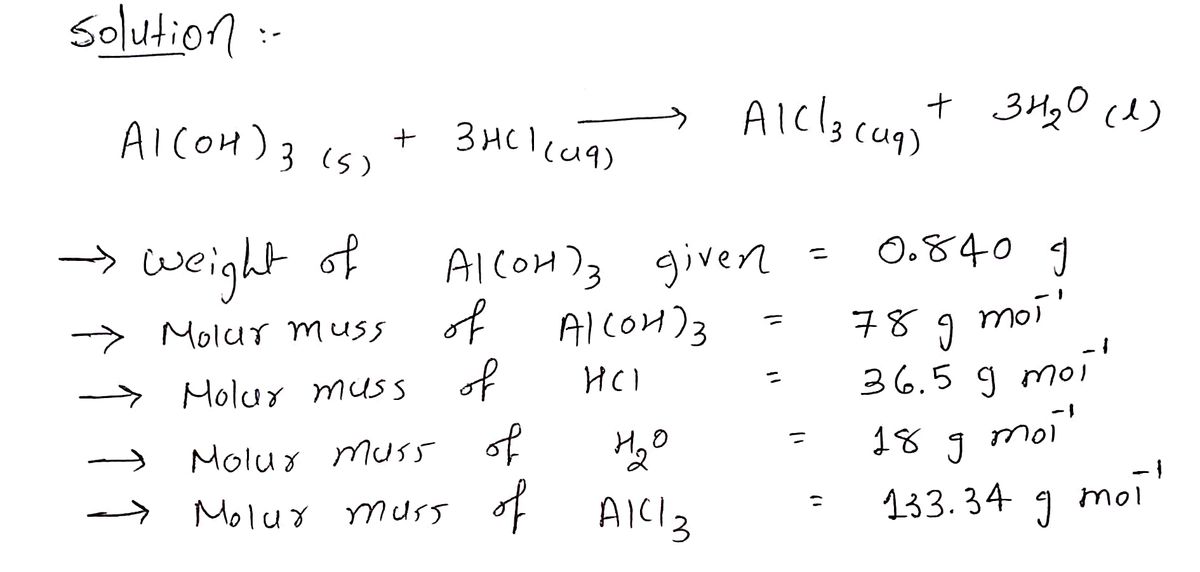 Solution :-
Al(OH)3 (s) + 3HCl(aq) → AlCl3 (aq) + 3H2O (l)
→ weight of Al(OH)3 given = 0.840 g
→ Molar mass of Al(OH)3 = 78 g mol⁻¹
→ Molar mass of HCl = 36.5 g mol⁻¹
→ Molar mass of H2O = 18 g mol⁻¹
→ Molar mass of AlCl3 = 133.34 g mol⁻¹